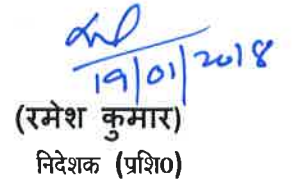 19/01/2018
(रमेश कुमार)
निदेशक (प्रशि0)